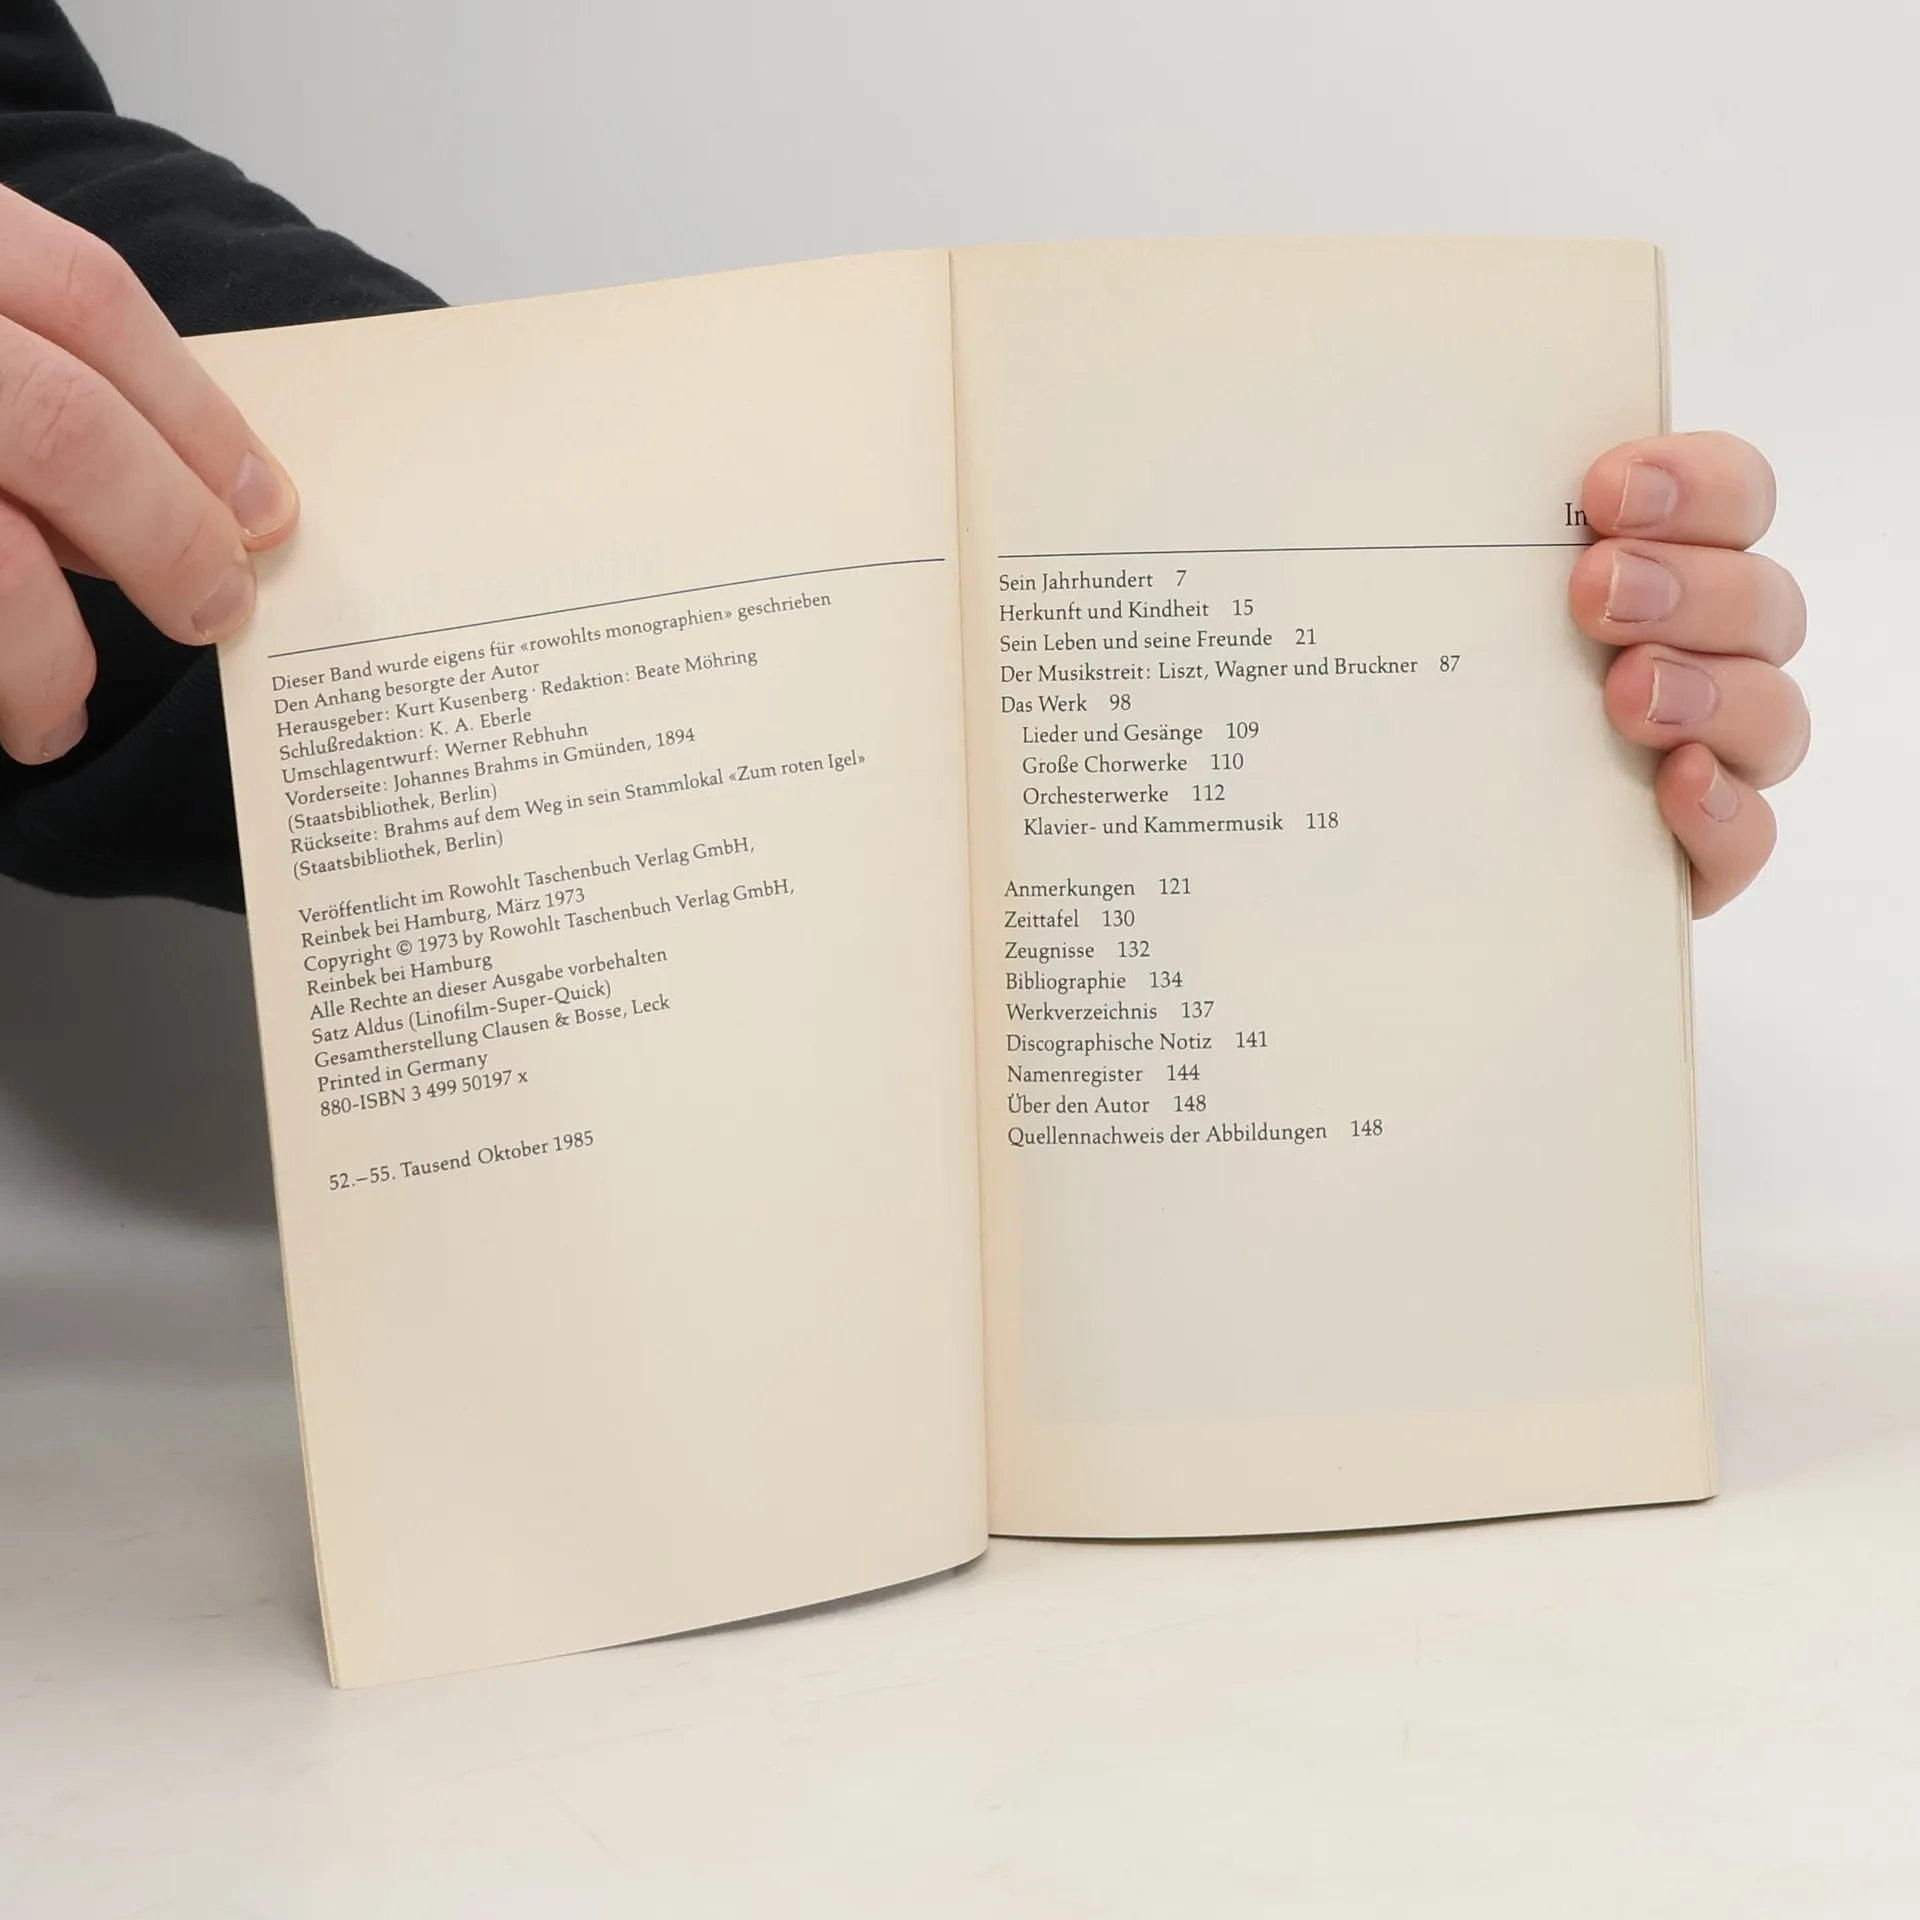 Dieser Band wurde eigens für «rowohlts monographien» geschrieben
Den Anhang besorgte der Autor
Herausgeber: Kurt Kusenberg · Redaktion: Beate Möhring
Schlußredaktion: K. A. Eberle
Umschlagentwurf: Werner Rebhuhn
Vorderseite: Johannes Brahms in Gmünden, 1894
(Staatsbibliothek, Berlin)
Rückseite: Brahms auf dem Weg in sein Stammlokal «Zum roten Igel»
(Staatsbibliothek, Berlin)
Veröffentlicht im Rowohlt Taschenbuch Verlag GmbH,
Reinbek bei Hamburg, März 1973
Copyright © 1973 by Rowohlt Taschenbuch Verlag GmbH,
Reinbek bei Hamburg
Alle Rechte an dieser Ausgabe vorbehalten
Satz Aldus (Linofilm-Super-Quick)
Gesamtherstellung Clausen & Bosse, Leck
Printed in Germany
880-ISBN 3 499 50197 x
52.–55. Tausend Oktober 1985
In
Sein Jahrhundert 7
Herkunft und Kindheit 15
Sein Leben und seine Freunde 21
Der Musikstreit: Liszt, Wagner und Bruckner 87
Das Werk 98
Lieder und Gesänge 109
Große Chorwerke 110
Orchesterwerke 112
Klavier- und Kammermusik 118
Anmerkungen 121
Zeittafel 130
Zeugnisse 132
Bibliographie 134
Werkverzeichnis 137
Discographische Notiz 141
Namenregister 144
Über den Autor 148
Quellennachweis der Abbildungen 148